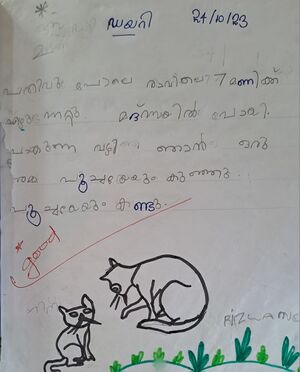 ഡയറി 24/10/23
പതിവു പോലെ രാവിലെ 7 മണിക്ക്
എഴുന്നേറ്റു. മദ്റസയിൽ പോയി.
പോകുന്ന വഴി ഞാൻ ഒരു
അമ്മ പൂച്ചയെയും കുഞ്ഞു
പൂച്ചയെയും കണ്ടു.
good
RIZWANA